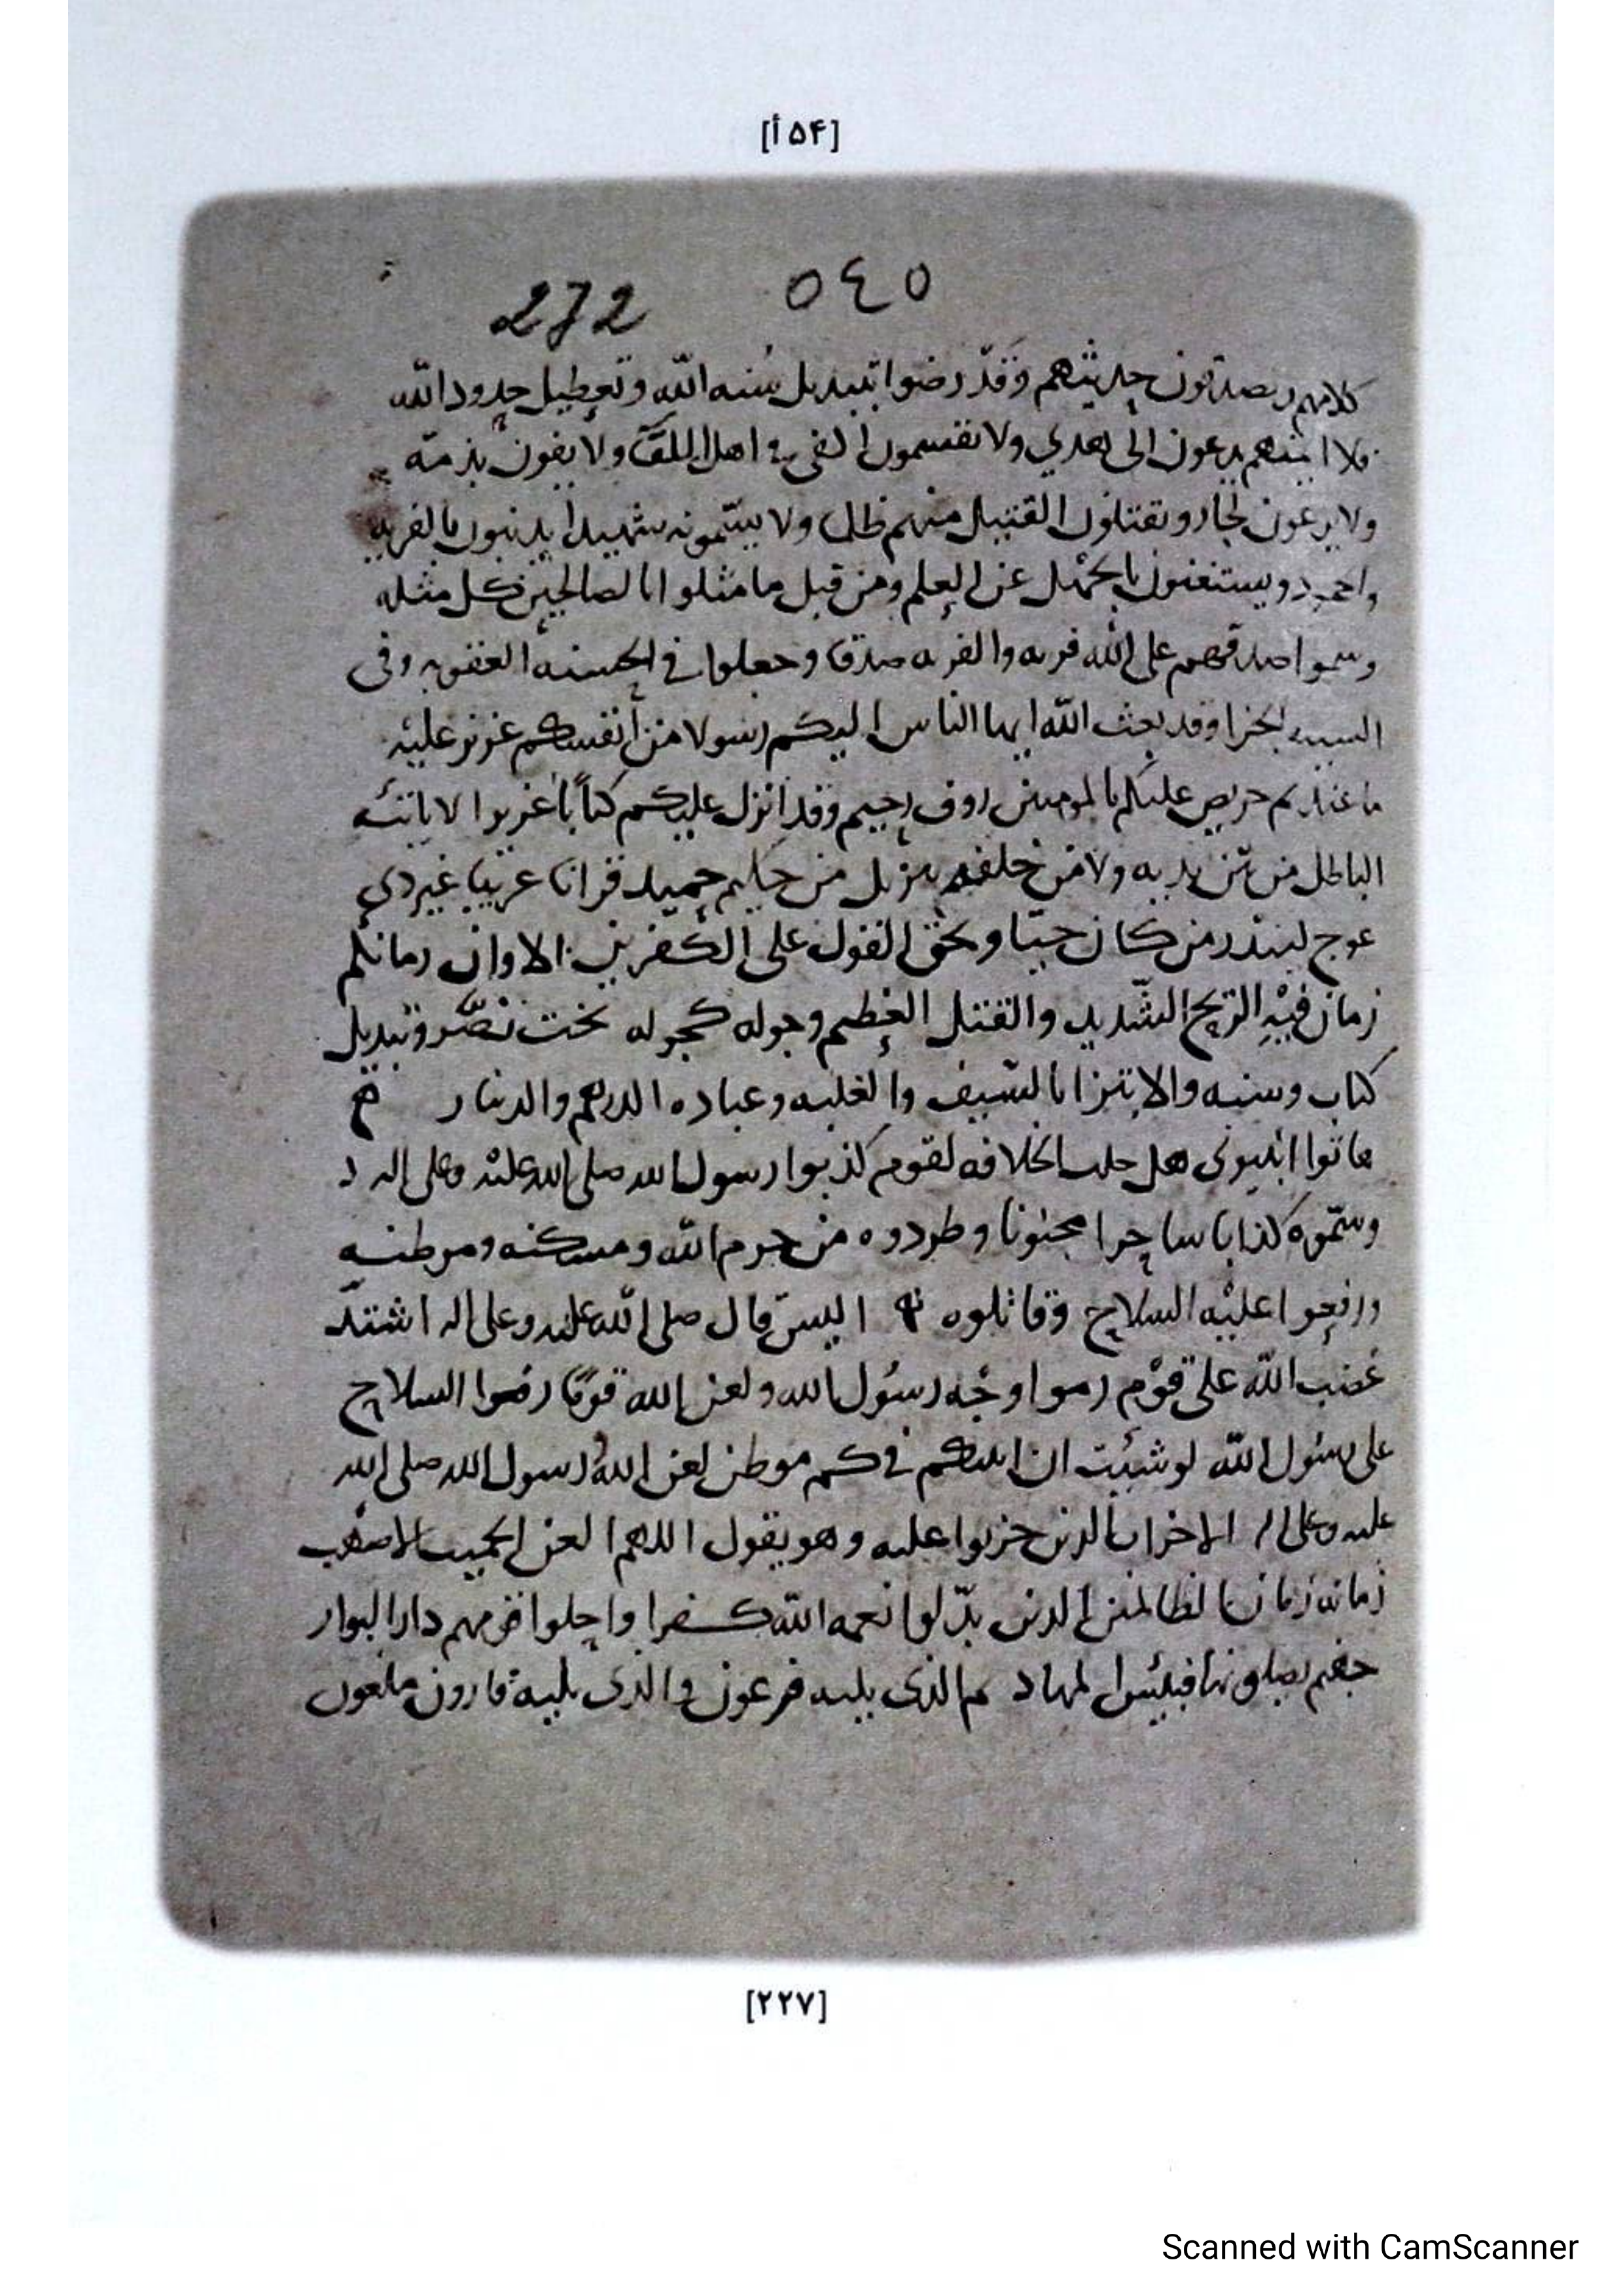 [۵۴أ]
272 ٥٤٥
كلامهم ويصدقون حديثهم وقد رضوا بتبديل سنه الله وتعطيل حدود الله
فلا يدعون الى هدي ولا يقسمون الفى ولا يفون بذمه
ولا يدعون وتقتلون القتيل منهم ولا شهيدا يدنبون بالفريه
ويستغنون بالجهل عن العلم ومن قبل ما مثلوا بالصالحين كل مثله
وسموا صدقهم على الله فريه والفريه صدقا وجعلوا في الحسنه العقوبه وفى
السييه الجزا وقد بعث الله ايها الناس اليكم رسولا من أنفسكم عزيز عليه
ما عنتم حريص عليكم بالمومنين روف رحيم وقد انزل عليكم كتاباً عزيزا لا ياتيه
الباطل من بين يديه ولا من خلفه تنزيل من حكيم حميد قرانا عربيا غير ذي
عوج لينذر من كان حيّا ويحق القول على الكفرين الا وان زمانكم
زمان فيه الريح الشديد والقتل العظيم وجوله كجوله بخت نصّر وتبديل
كتاب وسنه والابتزاز بالسيف والغلبه وعباده الدرهم والدينار
هاتوا هل حلت الخلافه لقوم كذبوا رسول الله صلى الله عليه وعلى اله
وسمّوه كذابا ساحرا مجنونا وطردوه من حرم الله ومسكنه وموطنه
ورفعوا عليه السلاح وقاتلوه اليس قال صلى الله عليه وعلى اله اشتد
غضب الله على قوم رموا وجه رسول الله ولعن الله قومًا رفعوا السلاح
على رسول الله لو شئت ان في كم موطن لعن الله رسول الله صلى الله
عليه وعلى اله الاحزاب الذين حزبوا عليه وهو يقول اللهم العن
زمانه زمان الظالمين الذين بدّلوا نعمه الله كفرا واحلوا قومهم دار البوار
جهنم يصلونها فبئس المهاد ثم الذى يليه فرعون والذى يليه قارون ملعون
[۲۲۷]
Scanned with CamScanner